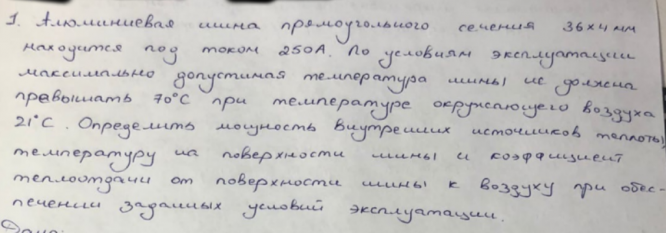 1. Алюминиевая шина прямоугольного сечения 36х4 мм
находится под током 250А. По условиям эксплуатации
максимально допустимая температура шины не должна
превышать 70°С при температуре окружающего воздуха
21°С. Определить мощность внутренних источников теплоты,
температуру на поверхности шины и коэффициент
теплоотдачи от поверхности шины к воздуху при обес-
печении заданных условий эксплуатации.